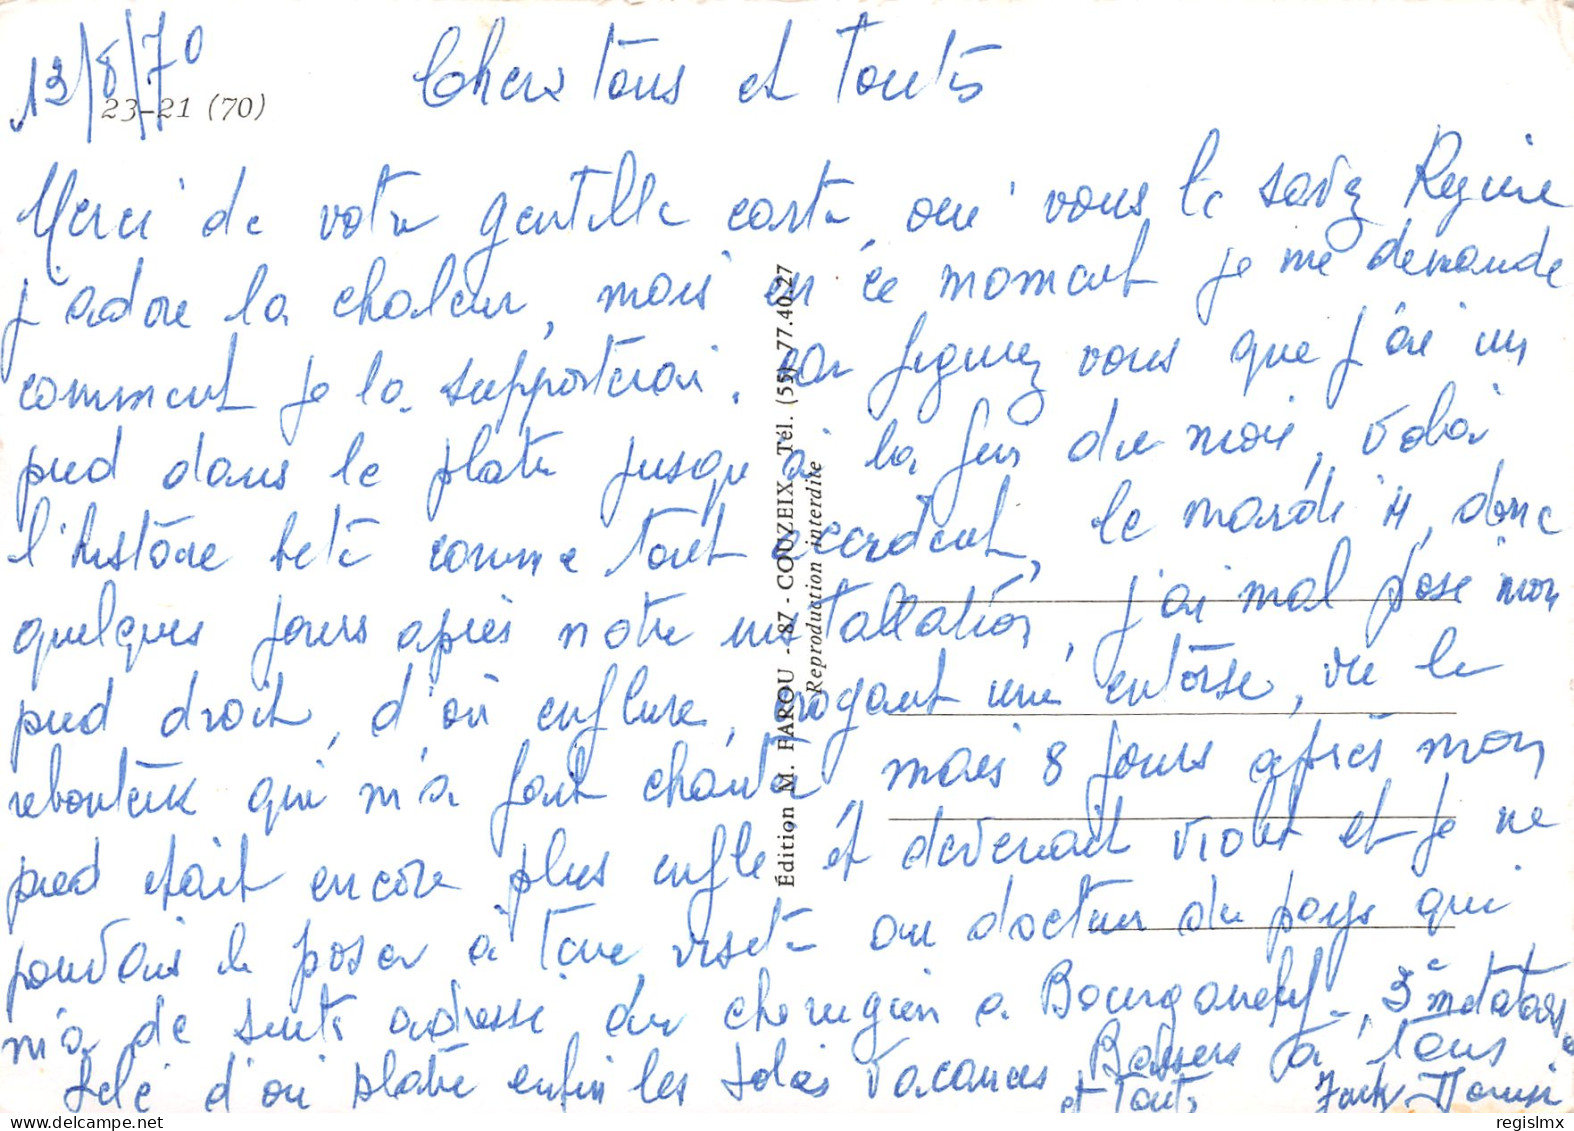 13/8/70
23-21 (70)
Chers tous et toutes
Merci de votre gentille carte, oui vous le savez Regine
j'adore la chaleur, mais en ce moment je me demande
comment je la supporterai. car figurez vous que j'ai un
pied dans le platre jusqu'à la fin du mois, voila
l'histoire bete comme tout accident, le mardi 14, donc
quelques jours après notre installation, j'ai mal posé mon
pied droit, d'où enflure, croyant une entorse, vu le
rebouteux qui m'a fait chanter mais 8 jours après mon
pied etait encore plus enflé et devenait violet et je ne
pouvais le poser à terre, visite au docteur du pays qui
m'a de suite adressé au chirurgien a Bourganeuf -, 3e metatars
felé d'où platre enfin les jolies vacances Baisers à tous
et toutes
Édition M. FAROU - 87 - COUZEIX Tél. (55) 77.40.27
Reproduction interdite
regislmx